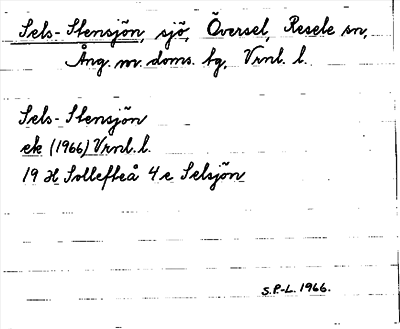 Sels-Stensjön, sjö, Översel, Resele sn,
Ång. m. doms. tg, Vrnl. l.
Sels-Stensjön
ek (1966) Vrnl. l.
19 H Sollefteå 4 e Selsjön
S.P-L. 1966.